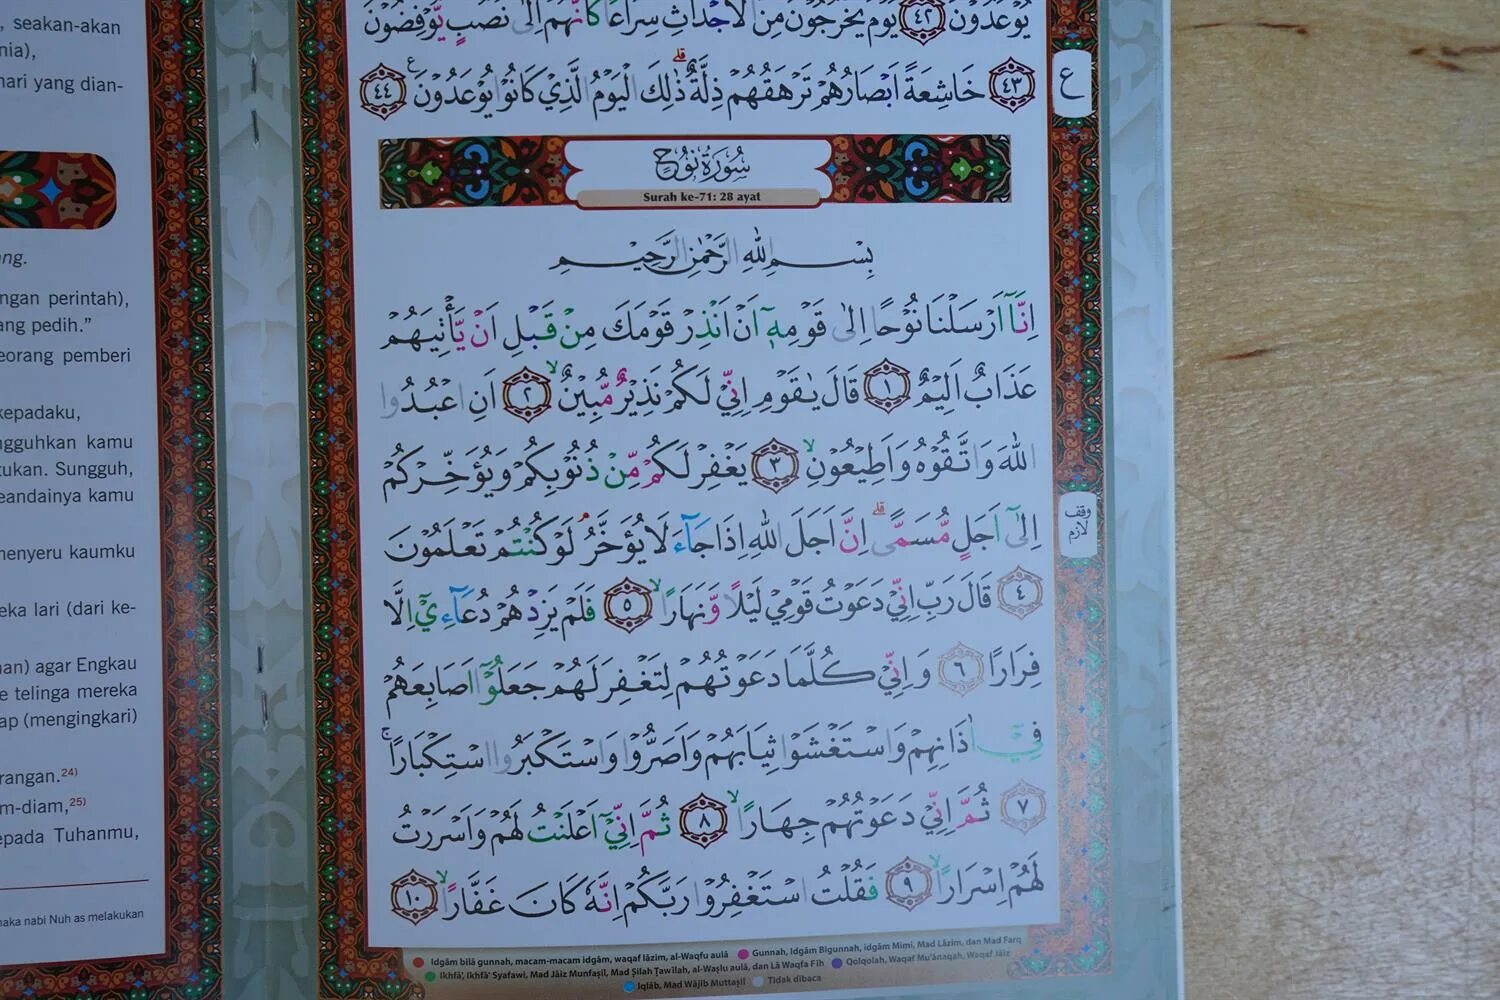 , seakan-akan
nia),
hari yang dian-
ang.
ngan perintah),
ang pedih.”
eorang pemberi
kepadaku,
ngguhkan kamu
tukan. Sungguh,
eandainya kamu
menyeru kaumku
eka lari (dari ke-
nan) agar Engkau
e telinga mereka
ap (mengingkari)
rangan.24)
m-diam,25)
epada Tuhanmu,
naka nabi Nuh as melakukan
يُوْعَدُوْنَ ﴿٤٢﴾ يَوْمَ يَخْرُجُوْنَ مِنَ الْاَجْدَاثِ سِرَاعًا كَاَنَّهُمْ اِلٰى نُصُبٍ يُّوْفِضُوْنَ
﴿٤٣﴾ خَاشِعَةً اَبْصَارُهُمْ تَرْهَقُهُمْ ذِلَّةٌ ۗذٰلِكَ الْيَوْمُ الَّذِيْ كَانُوْا يُوْعَدُوْنَ ࣖ ﴿٤٤﴾
ع
سُوْرَةُ نُوْحٍ
Surah ke-71: 28 ayat
بِسْمِ اللّٰهِ الرَّحْمٰنِ الرَّحِيْمِ
اِنَّآ اَرْسَلْنَا نُوْحًا اِلٰى قَوْمِهٖٓ اَنْ اَنْذِرْ قَوْمَكَ مِنْ قَبْلِ اَنْ يَّأْتِيَهُمْ
عَذَابٌ اَلِيْمٌ ﴿١﴾ قَالَ يٰقَوْمِ اِنِّيْ لَكُمْ نَذِيْرٌ مُّبِيْنٌۙ ﴿٢﴾ اَنِ اعْبُدُوا
اللّٰهَ وَاتَّقُوْهُ وَاَطِيْعُوْنِۙ ﴿٣﴾ يَغْفِرْ لَكُمْ مِّنْ ذُنُوْبِكُمْ وَيُؤَخِّرْكُمْ
اِلٰٓى اَجَلٍ مُّسَمًّىۗ اِنَّ اَجَلَ اللّٰهِ اِذَا جَاۤءَ لَا يُؤَخَّرُۘ لَوْ كُنْتُمْ تَعْلَمُوْنَ
وقف لازم
﴿٤﴾ قَالَ رَبِّ اِنِّيْ دَعَوْتُ قَوْمِيْ لَيْلًا وَّنَهَارًاۙ ﴿٥﴾ فَلَمْ يَزِدْهُمْ دُعَاۤءِيْٓ اِلَّا
فِرَارًا ﴿٦﴾ وَاِنِّيْ كُلَّمَا دَعَوْتُهُمْ لِتَغْفِرَ لَهُمْ جَعَلُوْٓا اَصَابِعَهُمْ
فِيْٓ اٰذَانِهِمْ وَاسْتَغْشَوْا ثِيَابَهُمْ وَاَصَرُّوْا وَاسْتَكْبَرُوا اسْتِكْبَارًاۚ
﴿٧﴾ ثُمَّ اِنِّيْ دَعَوْتُهُمْ جِهَارًاۙ ﴿٨﴾ ثُمَّ اِنِّيْٓ اَعْلَنْتُ لَهُمْ وَاَسْرَرْتُ
لَهُمْ اِسْرَارًاۙ ﴿٩﴾ فَقُلْتُ اسْتَغْفِرُوْا رَبَّكُمْ اِنَّهٗ كَانَ غَفَّارًاۙ ﴿١٠﴾
Idgām bilā gunnah, macam-macam idgām, waqaf lāzim, al-Waqfu aulā Gunnah, Idgām Bigunnah, idgām Mimi, Mad Lāzim, dan Mad Farq
Ikhfā', Ikhfā' Syafawi, Mad Jāiz Munfaṣil, Mad Ṣilah Ṭawīlah, al-Waṣlu aulā, dan Lā Waqfa Fīh Qolqolah, Waqaf Mu'ānaqah, Waqaf Jāiz
Iqlāb, Mad Wājib Muttaṣil Tidak dibaca